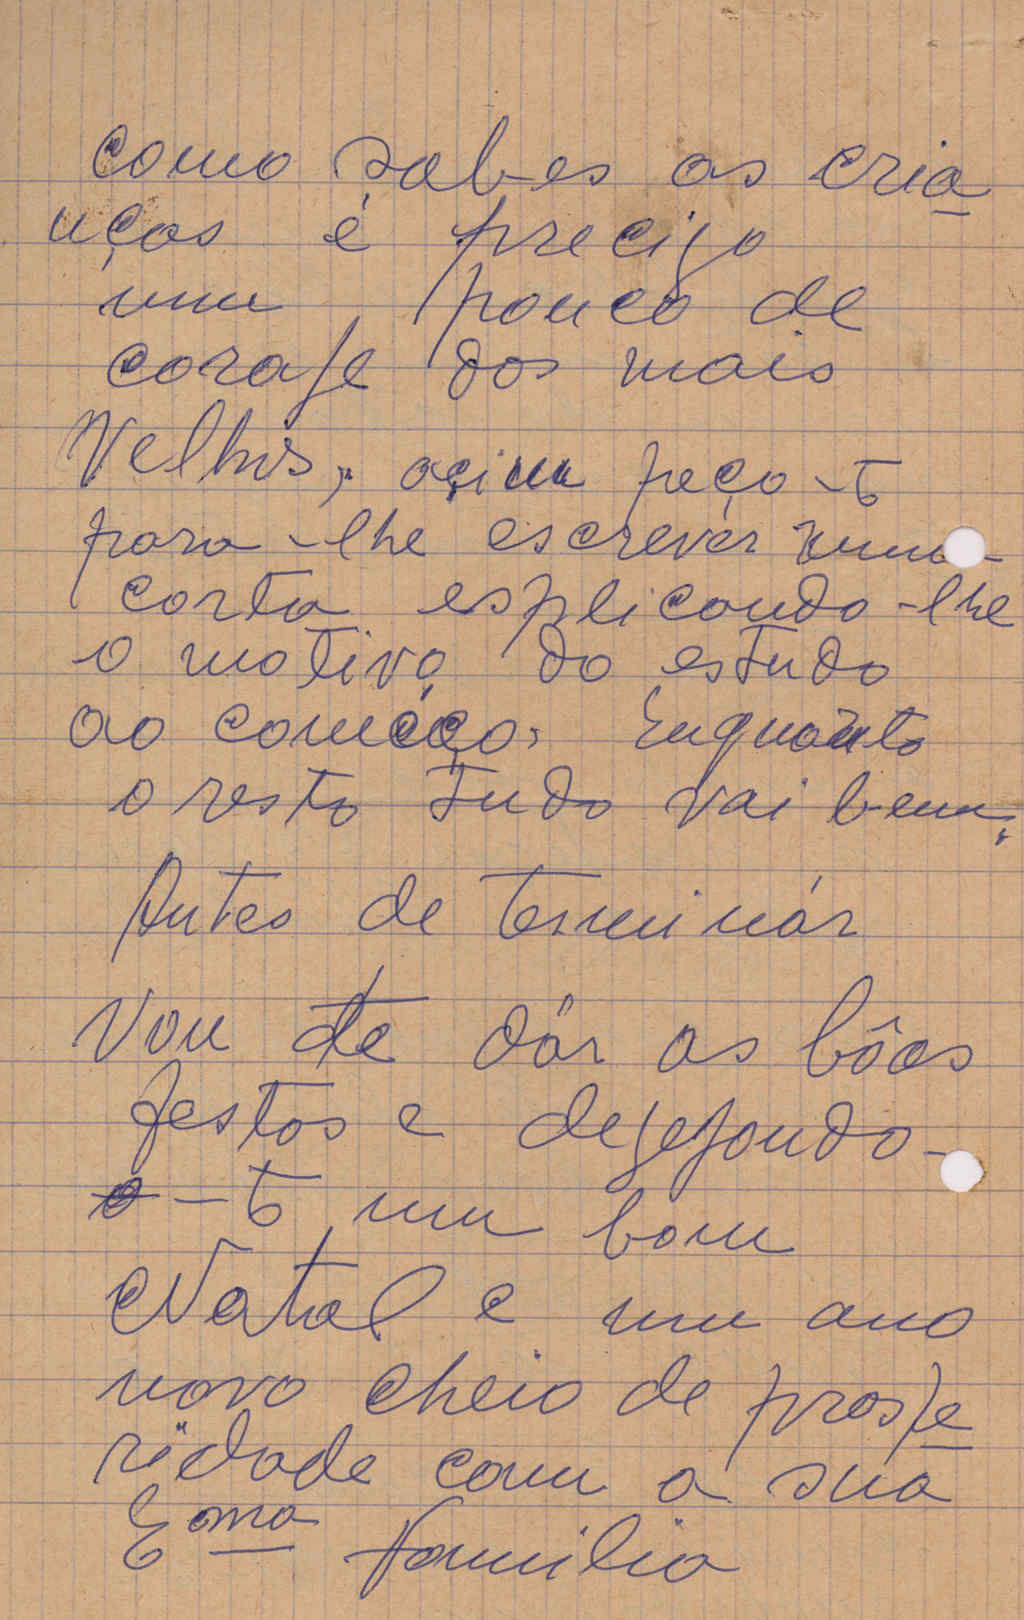 como sabes as cria
nças é precizo
um pouco de
coraje dos mais
Velhos, açim peço-t
para-lhe escrevêr uma
carta esplicando-lhe
o motivo do estudo
ao começo. Enquanto
o resto tudo vai bem,
Antes de terminár
Vou te dár as bôas
festas e dezejando-
-t um bom
Natal e um ano
novo cheio de prospe
ridade com a sua
Ema familia